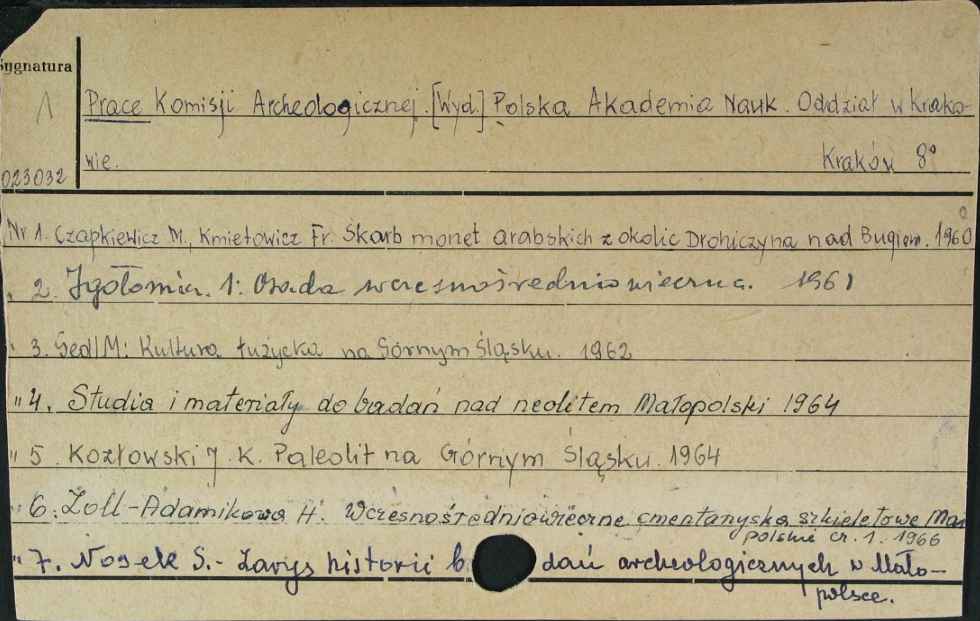 Sygnatura
1
Prace Komisji Archeologicznej. [Wyd.] Polska Akademia Nauk. Oddział w Krako-
wie. Kraków 8°
023032
Nr 1. Czapkiewicz M., Kmietowicz Fr. Skarb monet arabskich z okolic Drohiczyna nad Bugiem. 1960
" 2. Igołomia. 1: Osada wczesnośredniowieczna. 1961
" 3. Gedl M: Kultura łużycka na Górnym Śląsku. 1962
" 4. Studia i materiały do badań nad neolitem Małopolski 1964
" 5. Kozłowski J. K. Paleolit na Górnym Śląsku. 1964
" 6. Zoll-Adamikowa H. Wczesnośredniowieczne cmentarzyska szkieletowe Mało
polski cz. 1. 1966
" 7. Nosek S. - Zarys historii badań archeologicznych w Mało-
polsce.